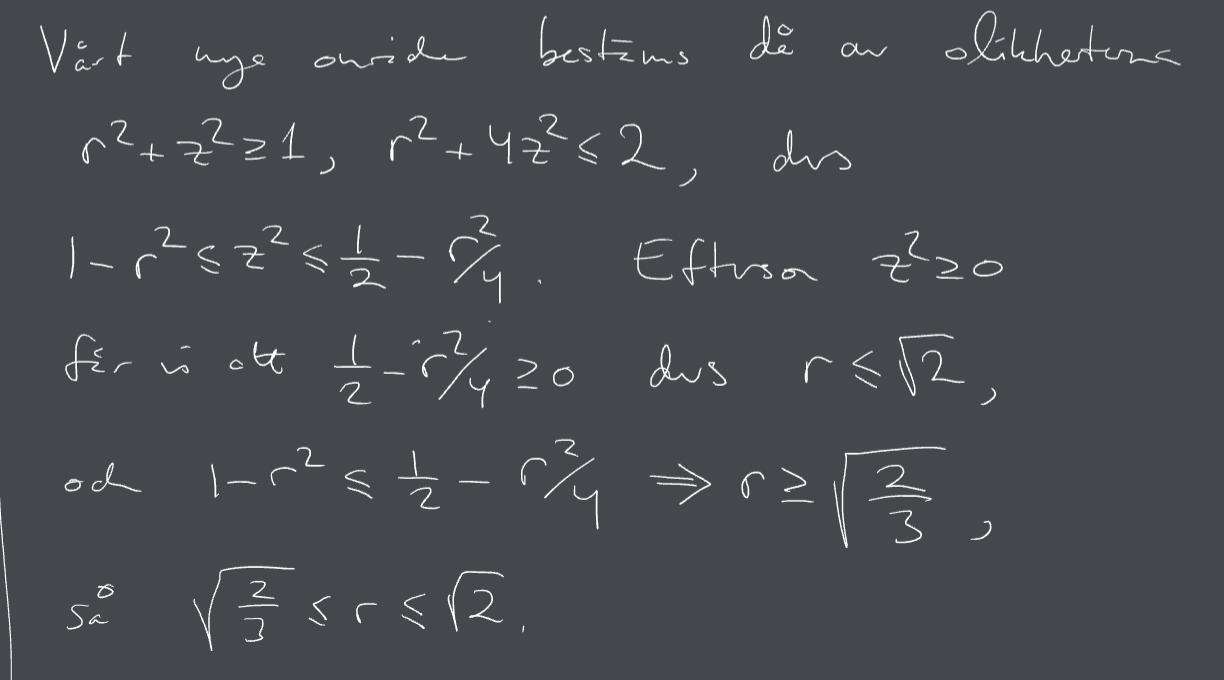 Vårt nya område bestäms då av olikheterna
r² + z² ≥ 1, r² + 4z² ≤ 2, dvs
1 - r² ≤ z² ≤ 1/2 - r²/4. Eftersom z² ≥ 0
får vi att 1/2 - r²/4 ≥ 0 dvs r ≤ √2,
och 1 - r² ≤ 1/2 - r²/4 ⇒ r ≥ √(2/3),
så √(2/3) ≤ r ≤ √2.